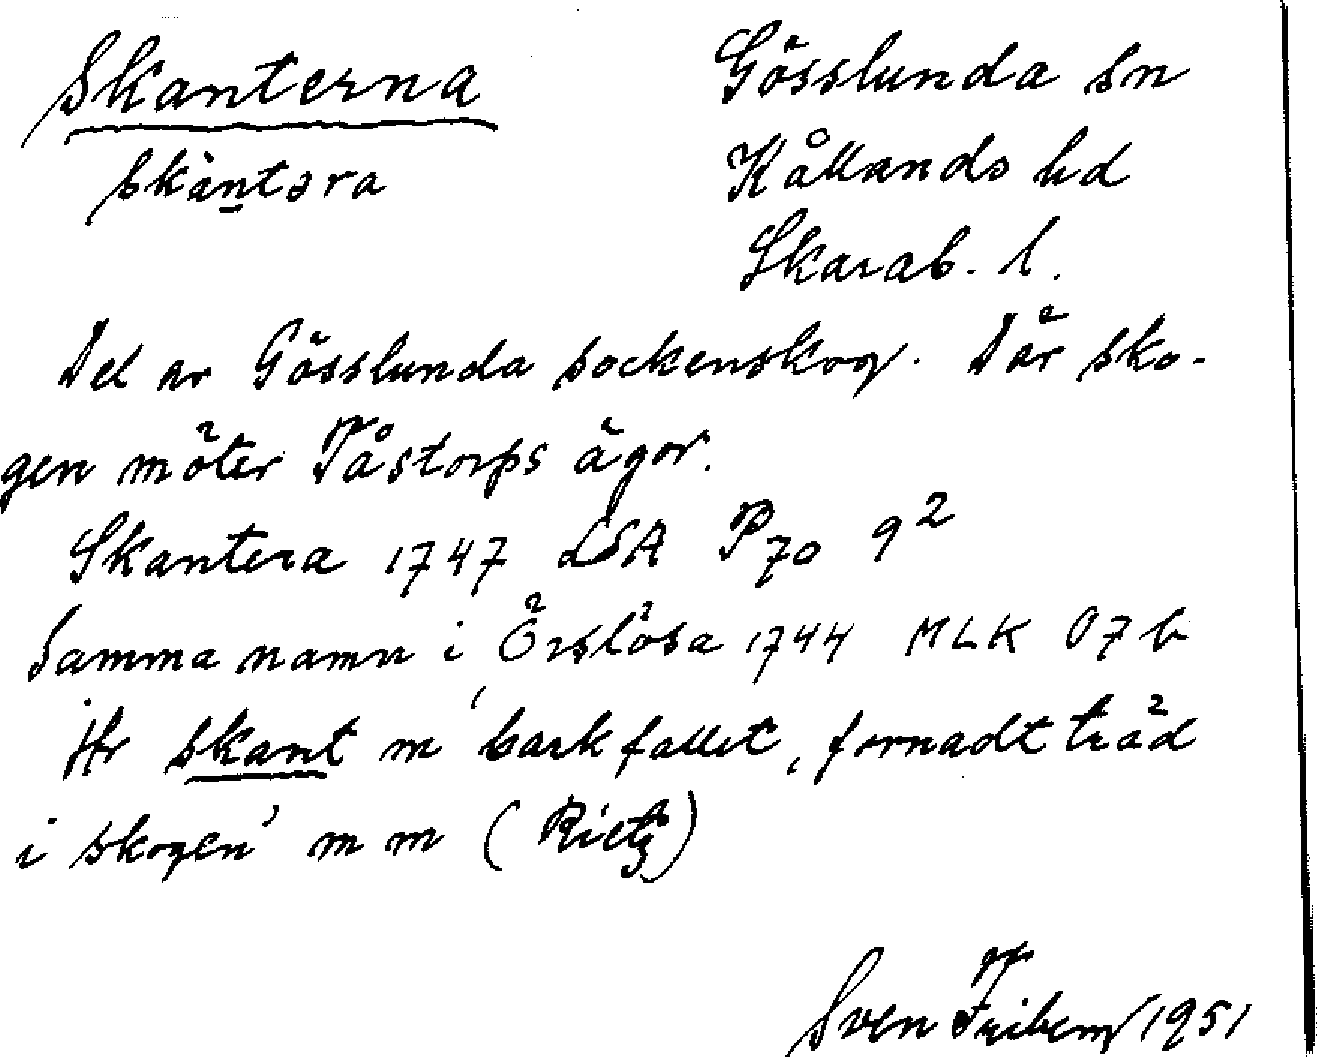 Skanterna Gösslunda sn
skàntəra Kållands hd
Skarab. l.
Del av Gösslunda sockenskog. Där sko-
gen möter Tåstorps ägor.
Skantera 1747 LSA P70 9²
Samma namn i Örslösa 1744 MLK O7b
Jfr skant m 'barkfallet, fornadt träd
i skogen' m m (Rietz)
Sven Friberg 1951